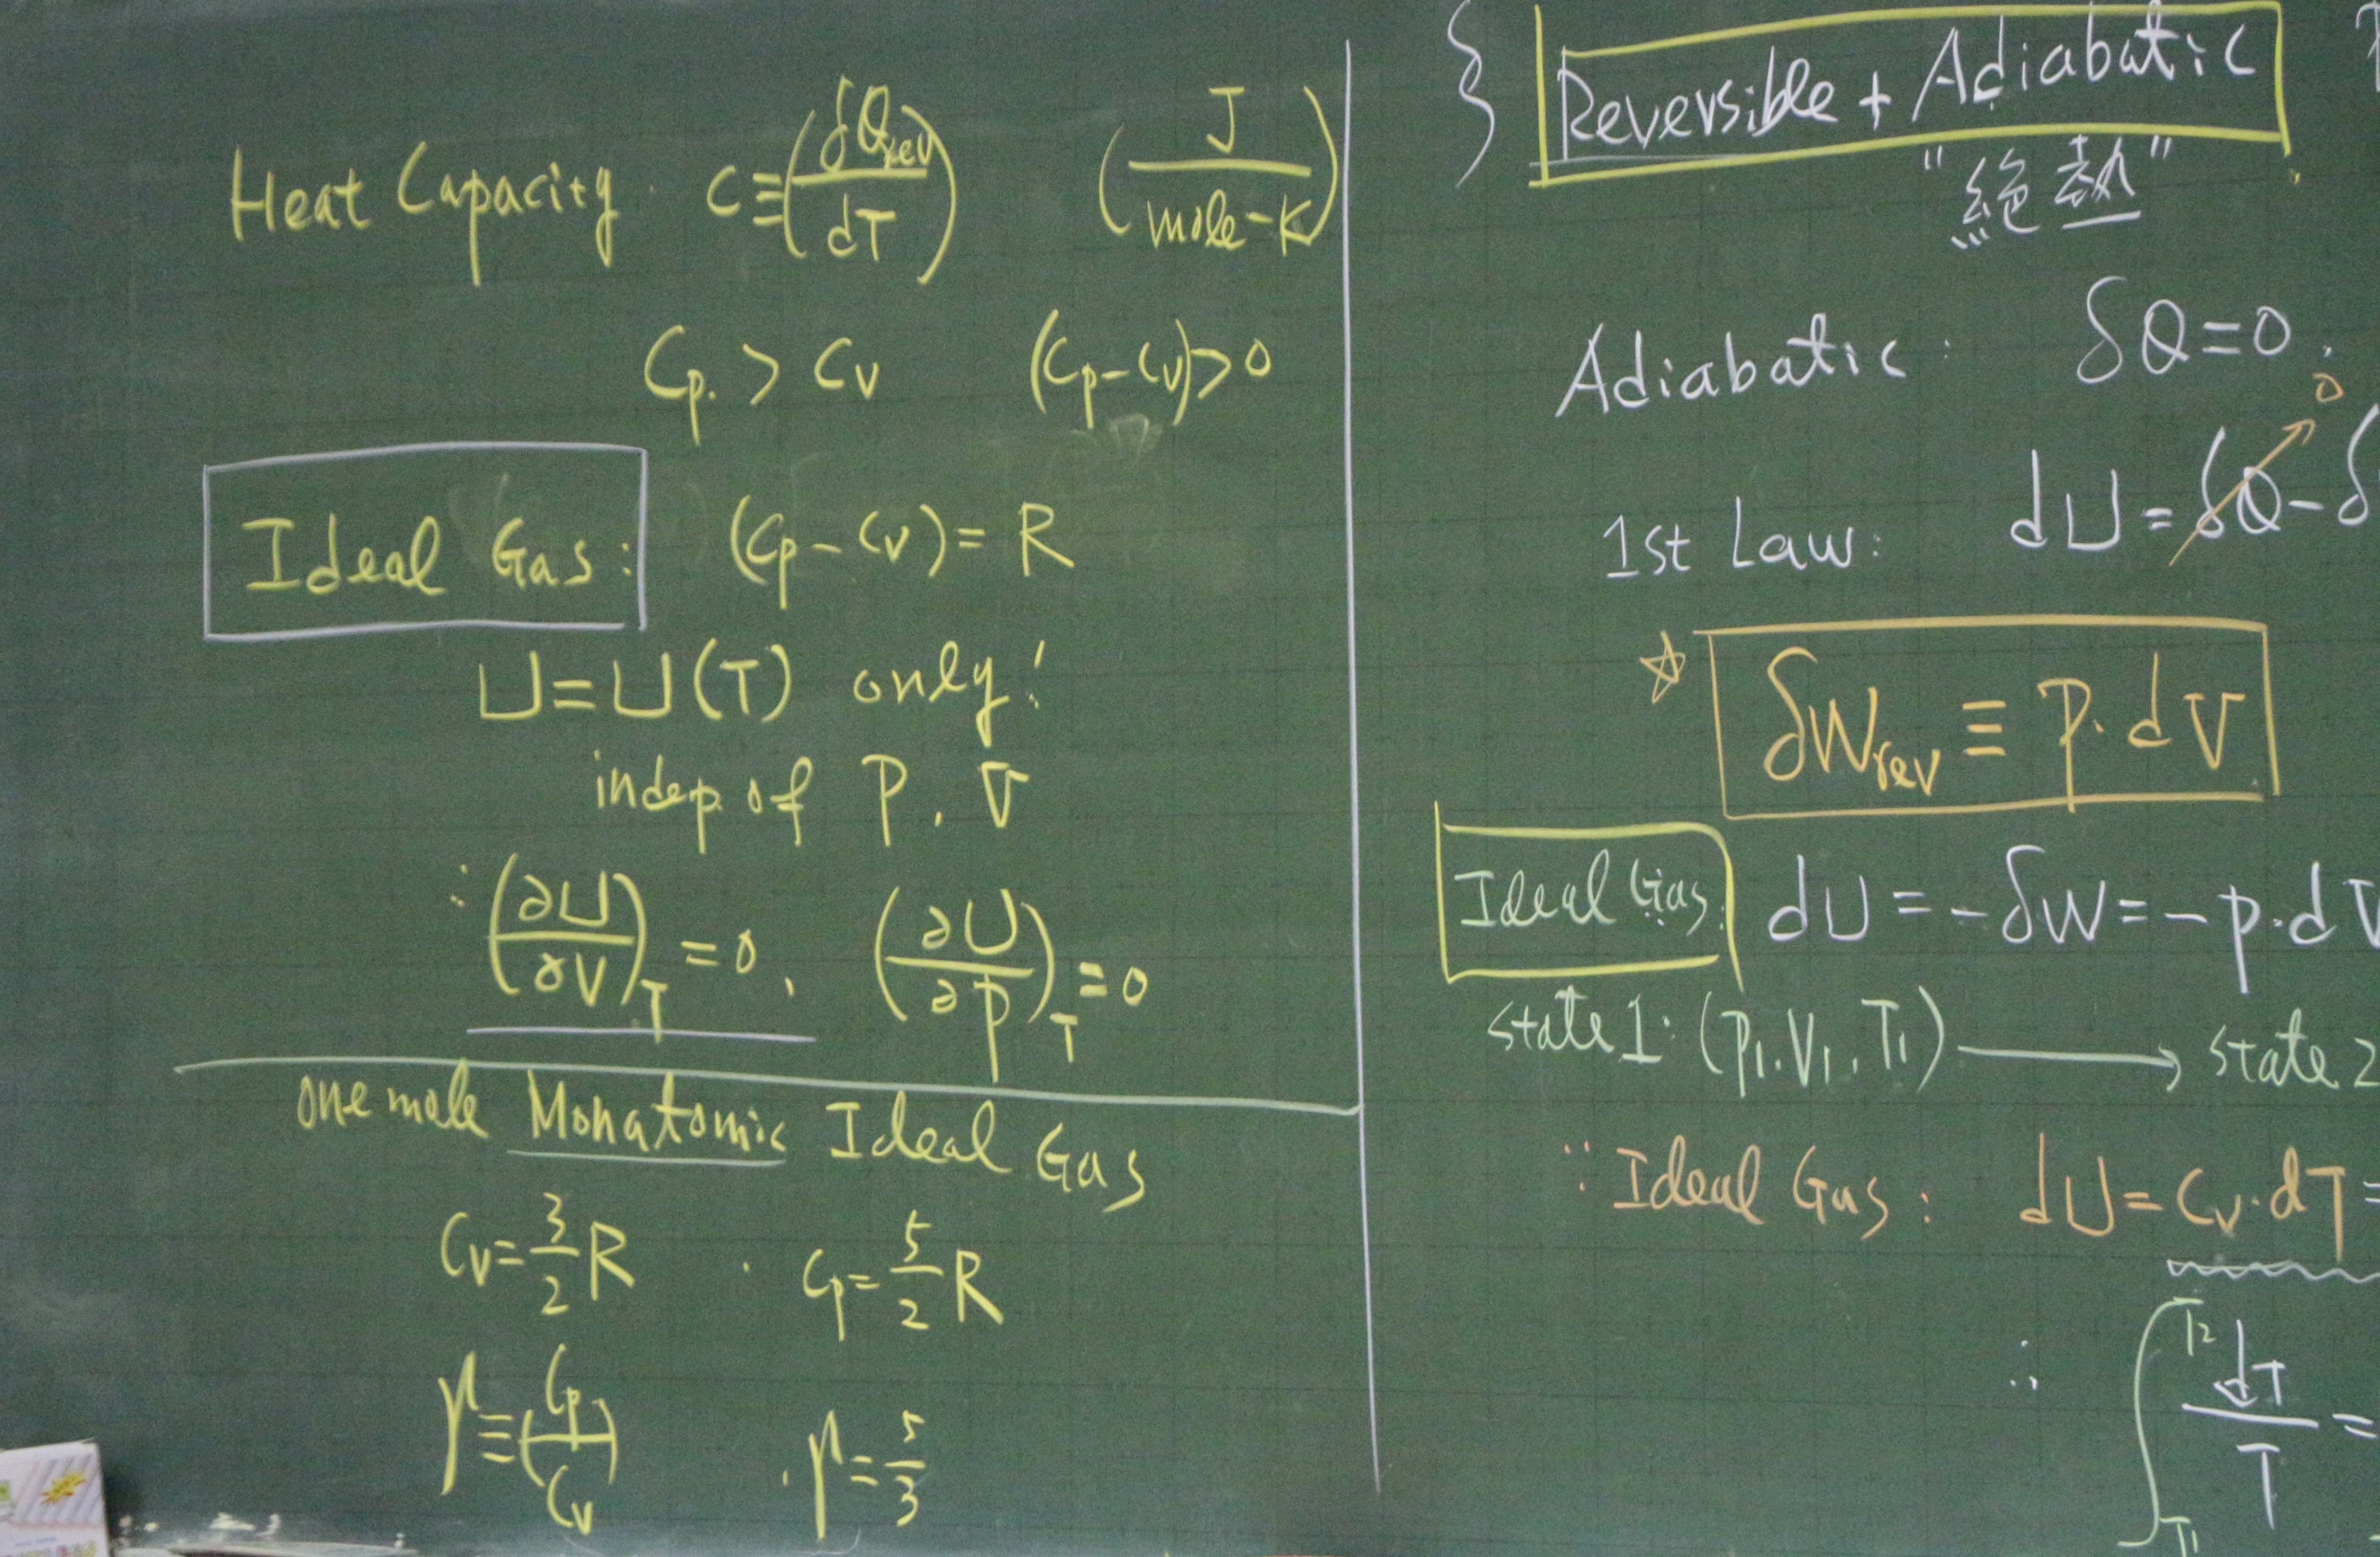 Heat Capacity. C≡(δQrev/dT) (J/mole-K)
Cp. > Cv (Cp-Cv)>0
Ideal Gas: (Cp-Cv)=R
U=U(T) only!
indep. of P, V
∴(∂U/∂V)T=0, (∂U/∂P)T=0
one mole Monatomic Ideal Gas
Cv=3/2R . Cp=5/2R
γ≡(Cp/Cv) . γ=5/3
Reversible + Adiabatic
"絕熱"
Adiabatic: δQ=0.
0
1st Law: dU=δQ-δ
☆ δWrev≡P.dV
Ideal Gas: dU=-δW=-P.dV
state 1: (P1.V1.T1) → state 2
∵Ideal Gas: dU=Cv.dT=
∴ ∫T1T2 dT/T=